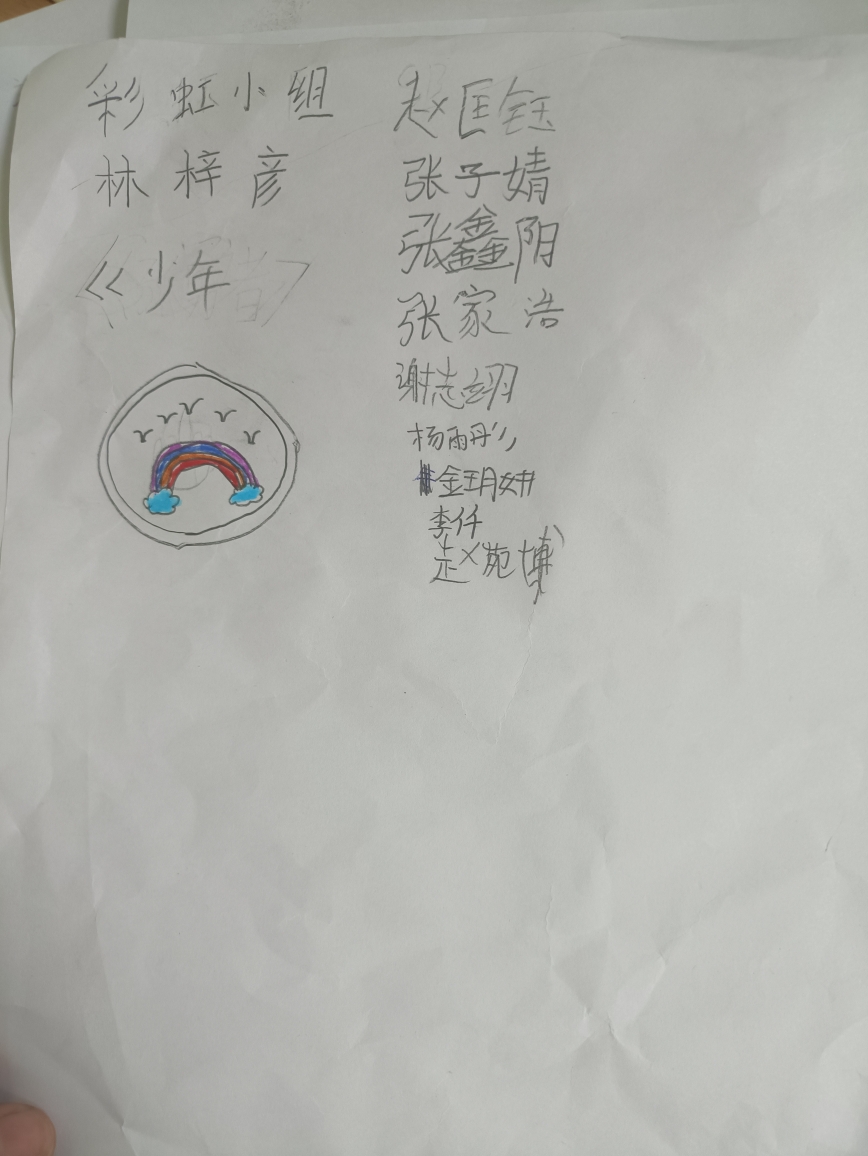 彩虹小组
林梓彦
《少年
赵匡钰
张子婧
张鑫阳
张家浩
谢志翊
杨雨彤
金玥妍
李仟
赵苑博